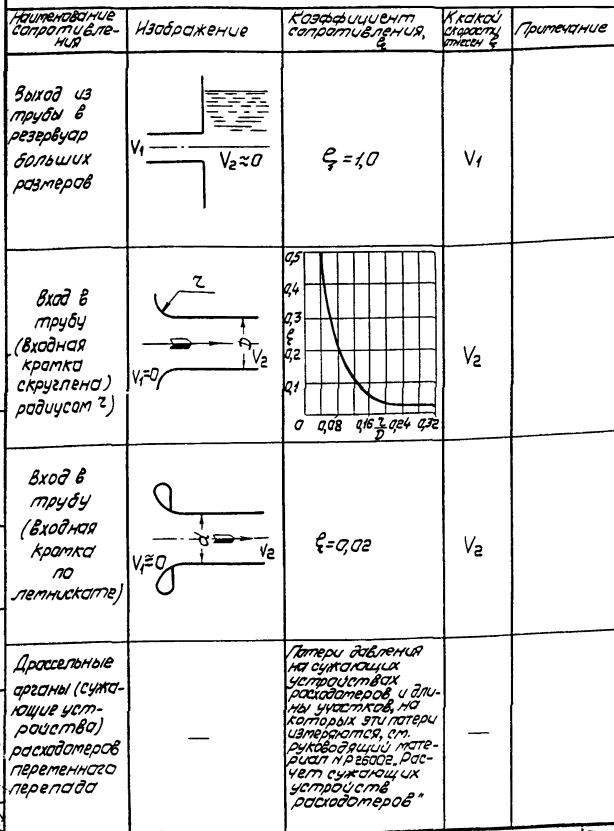 Наименование
сопротивле-
ния
Изображение
Коэффициент
сопротивления,
ξ
К какой
скорости
отнесен ξ
Примечание
Выход из
трубы в
резервуар
больших
размеров
V₁
V₂≈0
ξ=1,0
V₁
Вход в
трубу
(входная
кромка
скруглена)
радиусом r)
r
D
V₂
V₁=0
0,5
0,4
0,3
ξ
0,2
0,1
0 0,08 0,16 r/D 0,24 0,32
V₂
Вход в
трубу
(входная
кромка
по
лемнискате)
d
V₂
V₁≈0
ξ=0,02
V₂
Дроссельные
органы (сужа-
ющие уст-
ройства)
расходомеров
переменного
перепада
—
Потери давления
на сужающих
устройствах
расходомеров, и дли-
ны участков, на
которых эти потери
измеряются, см.
руководящий мате-
риал №Р26002 „Рас-
чет сужающих
устройств
расходомеров"
—